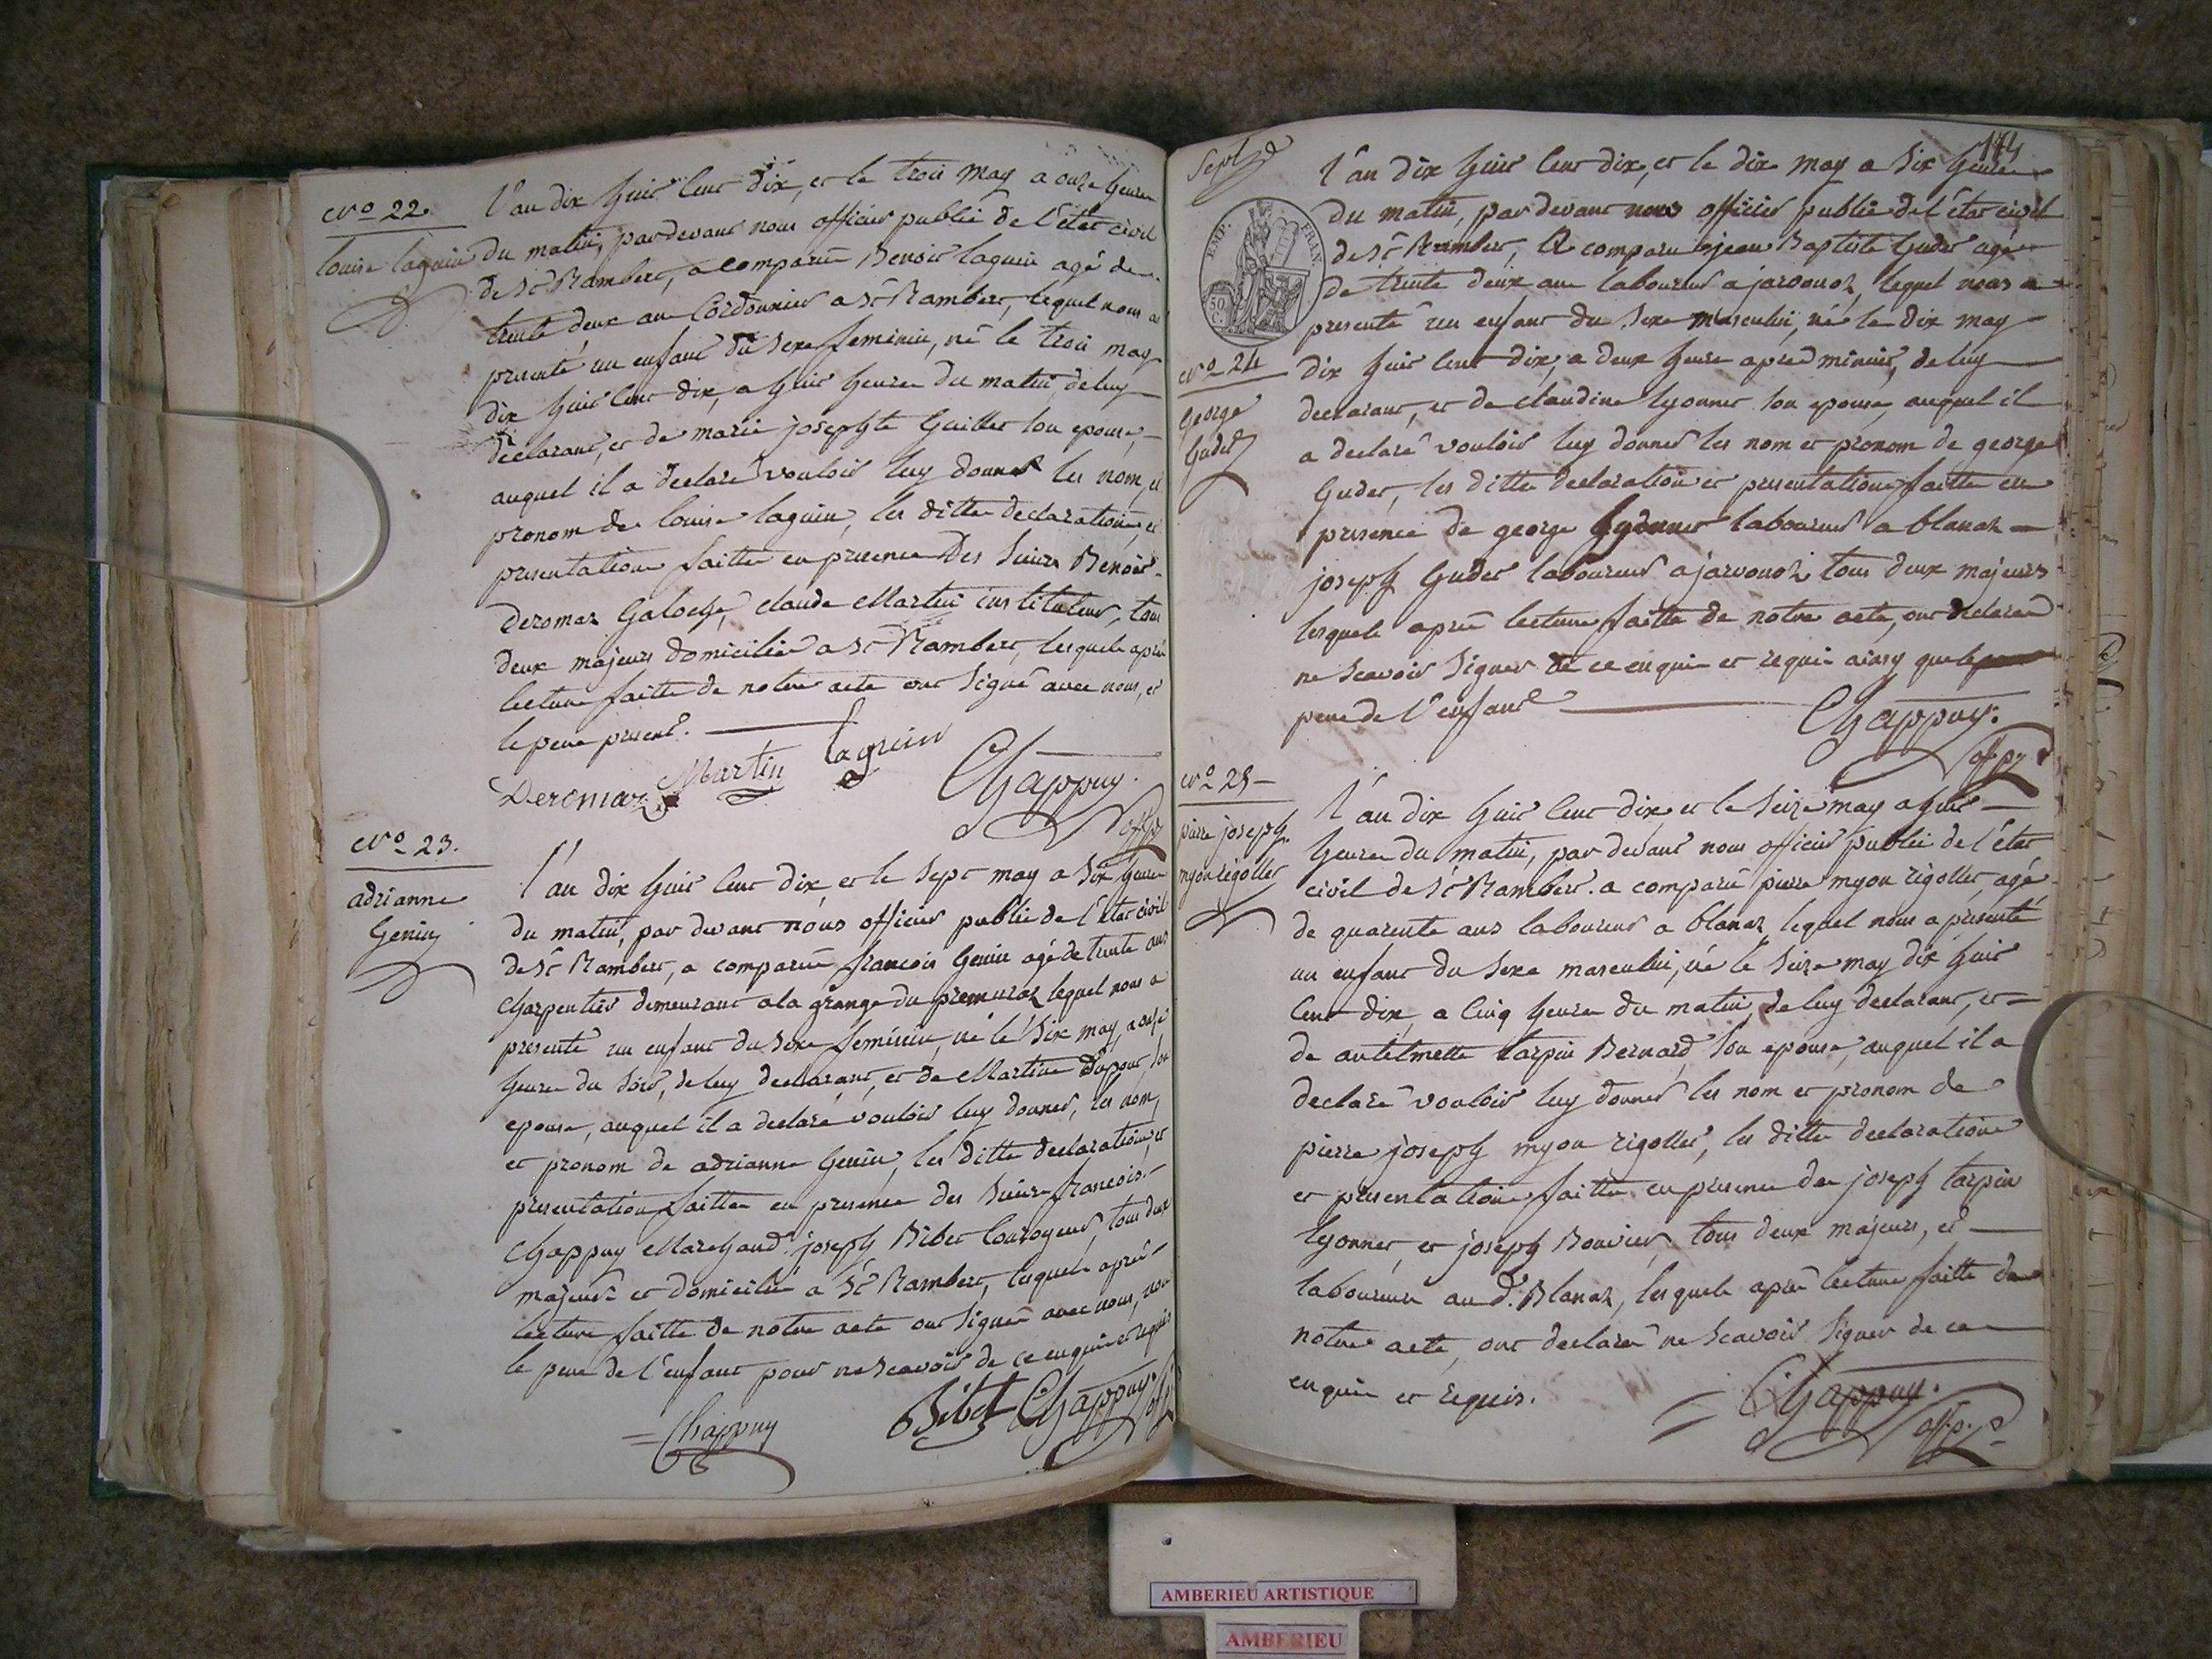 N.o 22.
louise laguin
L'an dix huit cent dix, et le trois may a onze heures
du matin, par devant nous officier public de l'état civil
de St Rambert, a comparu Benoit laguin agé de
trente deux an Cordonnier a St Rambert, lequel nous a
presenté un enfant du sexe feminin, né le trois may
dix huit cent dix, a huit heures du matin, de luy
declarant, et de marie josephte Guillet son epouse,
auquel il a declaré vouloir luy donner les nom, et
pronom de louise laguin, les ditte declaration, et
presentation faitte en presence des sieurs Benoit
Deromaz Galoche, claude Martin instituteur, tous
deux majeurs domicilié a St Rambert, lesquels après
lecture faitte de notre acte ont signé avec nous, et
le pere present.
Deromaz Martin laguin Chappuy. off. p.
N.o 23.
adrianne
Genin
L'an dix huit cent dix, et le sept may a six heures
du matin, par devant nous officier public de l'état civil
de St Rambert, a comparu francois Genin agé de trente ans
charpentier demeurant a la grange du premuraz lequel nous a
presenté un enfant du sexe feminin, né le six may, a onze
heures du soir, de luy declarant, et de Martine Dupont, son
epouse, auquel il a declaré vouloir luy donner, les nom,
et pronom de adrianne Genin, les ditte declaration, et
presentation faitte en presence des sieurs francois
Chappuy Marchand, joseph Bibet Couroyeur, tous deux
majeurs et domicilié a St Rambert, lesquels après
lecture faitte de notre acte ont signé avec nous, non
le pere de l'enfant pour ne scavoir de ce enquis et requis
Chappuy Bibet Chappuy. off. p.
174
Sept.
EMP. FRAN.
50 C.
N.o 24
George
Gudet
L'an dix huit cent dix, et le dix may a six heures
du matin, par devant nous officier public de l'état civil
de St Rambert, a comparu jean Baptiste Gudet agé
de trente deux ans laboureur a jarvonoz, lequel nous a
presenté un enfant du sexe masculin, né le dix may
dix huit cent dix, a deux heures apres minuit, de luy
declarant, et de claudine lyonnet son epouse, auquel il
a declaré vouloir luy donner les nom et pronom de george
Gudet, les ditte declaration et presentation faitte en
presence de george lyonnet laboureur a blanaz
joseph Gudet laboureur a jarvonoz tous deux majeurs
lesquels après lecture faitte de notre acte, ont declaré
ne scavoir signer de ce enquis et requis ainsy que le
pere de l'enfant
Chappuy. off. p.
N.o 25
pierre joseph
myon rigollet
L'an dix huit cent dix et le seize may a huit
heures du matin, par devant nous officier public de l'état
civil de St Rambert. a comparu pierre myon rigollet, agé
de quarente ans laboureur a blanaz lequel nous a presenté
un enfant du sexe masculin, né le seize may dix huit
cent dix, a cinq heures du matin, de luy declarant, et
de antelmette tarpin Bernard, son epouse, auquel il a
declaré vouloir luy donner les nom et pronom de
pierre joseph myon rigollet, les ditte declaration
et presentation faitte en presence de joseph tarpin
lyonnet, et joseph Bouvier tous deux majeurs, et
laboureurs au d. Blanaz, lesquels après lecture faitte de
notre acte, ont declaré ne scavoir signer de ce
enquis et requis.
Chappuy. off. p.
AMBERIEU ARTISTIQUE
AMBERIEU